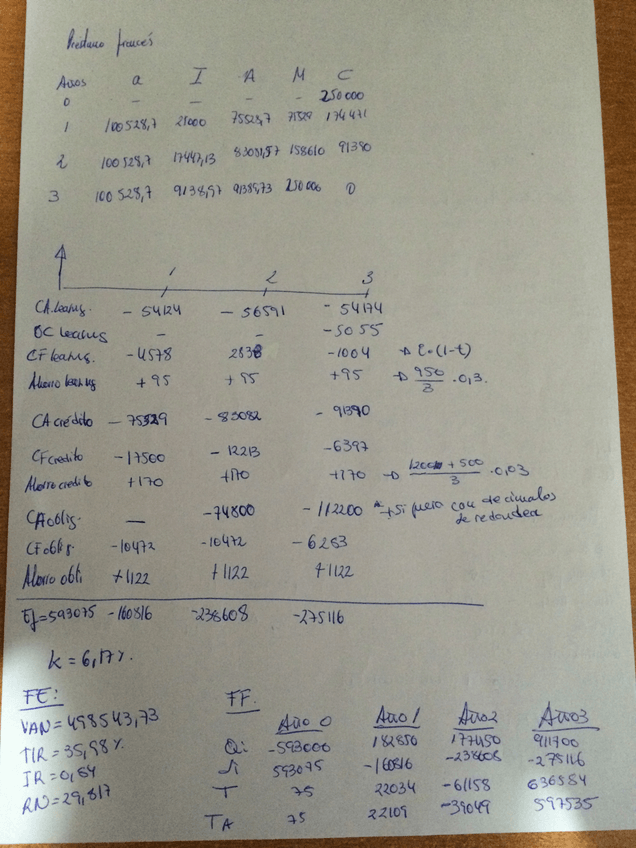 Prestamo francés
Años a I A M C
0 - - - - 250000
1 100528,7 25000 75528,7 75529 174471
2 100528,7 17447,13 83081,57 158610 91390
3 100528,7 9138,97 91389,73 250000 0
1 2 3
CA leasing. - 54124 - 56591 - 54174
OC leasing - - -5055
CF leasing. -4578 2838 -1004 → i·(1-t)
Ahorro leasing +95 +95 +95 → 950/3 · 0,3.
CA crédito - 75529 - 83082 - 91390
CF credito -17500 - 12213 -6397
Ahorro credito +170 +170 +170 → 1200 + 500/3 · 0,03
CA oblig. — -74800 - 112200 * si fuera con decimales
se redondea
CF oblig. -10472 -10472 - 6283
Ahorro obli +1122 +1122 +1122
Ef=593075 -160816 -238608 -275116
k = 6,17%.
FE: FF.
VAN=498543,73 Año 0 Año 1 Año 2 Año3
TIR=35,98% Qi -593000 182850 177450 911700
IR=0,84 593075 -160816 -238608 -275116
RN=29,817 T 75 22034 -61158 636584
TA 75 22109 -39049 597535